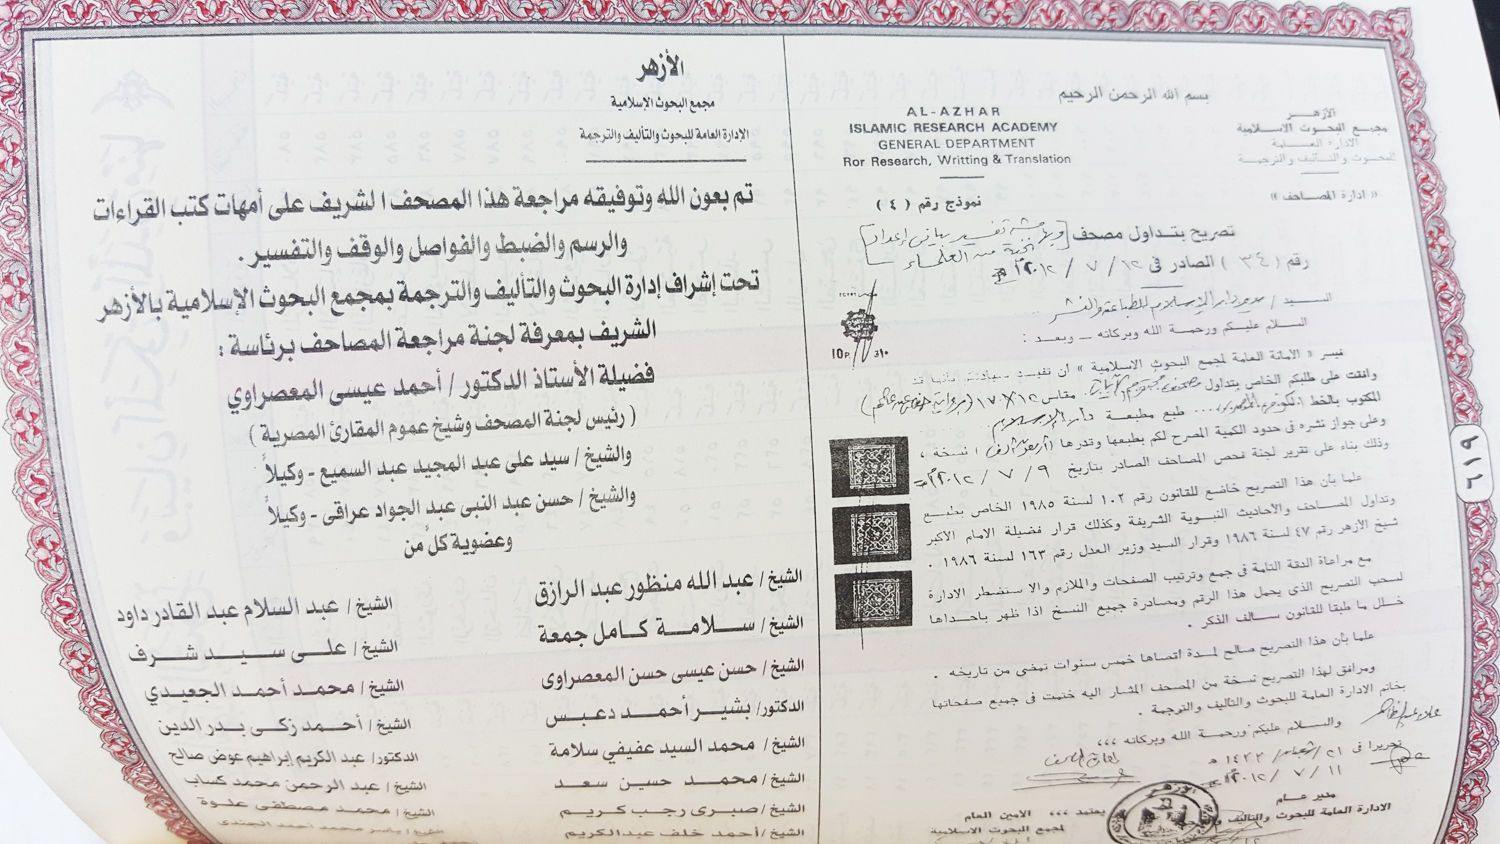 بسم الله الرحمن الرحيم
الأزهـــر
مجمع البحوث الاسلامية
الادارة العـــامة
للبحوث والتأليف والترجمة
AL-AZHAR
ISLAMIC RESEARCH ACADEMY
GENERAL DEPARTMENT
Ror Research, Writting & Translation
« ادارة المصاحف »
نموذج رقم ( ٤ )
تصريح بتداول مصحف [وبهامشه تفسير وبيان إعداد
نخبة من العلماء]
رقم ( ٣٤ ) الصادر فى ١٢ / ٧ / ٢٠١٢ م
السيد / مدير دار الإسلام للطباعة والنشر
السلام عليكم ورحمة الله وبركاته ــ وبعد :
تيسر « الامانة العامة لمجمع البحوث الاسلامية » أن تفيد سيادتكم بأنها قد
وافقت على طلبكم الخاص بتداول مصحف مقاس ١٢×١٧ (برواية حفص عن عاصم)
المكتوب بالخط ... طبع مطبعة دار الإسلام
وعلى جواز نشره فى حدود الكمية المصرح لكم بطبعها وقدرها نسخة ،
وذلك بناء على تقرير لجنة فحص المصاحف الصادر بتاريخ ٩ / ٧ / ٢٠١٢ م
علما بأن هذا التصريح خاضع للقانون رقم ١٠٢ لسنة ١٩٨٥ الخاص بطبع
وتداول المصاحف والاحاديث النبوية الشريفة وكذلك قرار فضيلة الامام الاكبر
شيخ الازهر رقم ٤٧ لسنة ١٩٨٦ وقرار السيد وزير العدل رقم ١٦٣ لسنة ١٩٨٦ .
مع مراعاة الدقة التامة فى جمع وترتيب الصفحات والملازم والا ستضطر الادارة
لسحب التصريح الذى يحمل هذا الرقم ومصادرة جميع النسخ اذا ظهر باحداها
خلل ما طبقا للقانون سالف الذكر .
علما بأن هذا التصريح صالح لمدة اقصاها خمس سنوات تمضى من تاريخه .
ومرافق لهذا التصريح نسخة من المصحف المشار اليه ختمت فى جميع صفحاتها
بخاتم الادارة العامة للبحوث والتأليف والترجمة .
والسلام عليكم ورحمة الله وبركاته ،،،
تحريرا فى ٢١ / شعبان / ١٤٣٣ هـ
١١ / ٧ / ٢٠١٢ م
مدير عام
الادارة العامة للبحوث والتأليف والترجمة
يعتمد ،،،
الامين العام
لمجمع البحوث الاسلامية
الأزهر
10P.
٦١٩
الأزهر
مجمع البحوث الإسلامية
الإدارة العامة للبحوث والتأليف والترجمة
تم بعون الله وتوفيقه مراجعة هذا المصحف الشريف على أمهات كتب القراءات
والرسم والضبط والفواصل والوقف والتفسير .
تحت إشراف إدارة البحوث والتأليف والترجمة بمجمع البحوث الإسلامية بالأزهر
الشريف بمعرفة لجنة مراجعة المصاحف برئاسة :
فضيلة الأستاذ الدكتور / أحمد عيسى المعصراوي
( رئيس لجنة المصحف وشيخ عموم المقارئ المصرية )
والشيخ / سيد على عبد المجيد عبد السميع - وكيلاً
والشيخ / حسن عبد النبى عبد الجواد عراقى - وكيلاً
وعضوية كلٍ من
الشيخ / عبد الله منظور عبد الرازق
الشيخ / عبد السلام عبد القادر داود
الشيخ / ســلامــة كـامل جمعة
الشيخ / علـى سـيـد شـرف
الشيخ / حسن عيسى حسن المعصراوى
الشيخ / محمد أحمـد الجعيدي
الدكتور/ بشيـر أحمـد دعبـس
الشيخ / أحمـد زكـى بدر الدين
الشيخ / محمد السيد عفيفي سلامة
الدكتور/ عبد الكريم إبراهيم عوض صالح
الشيخ / محمـد حسيـن سعـد
الشيخ / عبد الرحمن محمد كساب
الشيخ / صبـرى رجـب كريـم
الشيخ / محمـد مصطفـى علـوة
الشيخ / أحمد خلف عبدالكريم
الشيخ / ياسر محمد أحمد الجندي